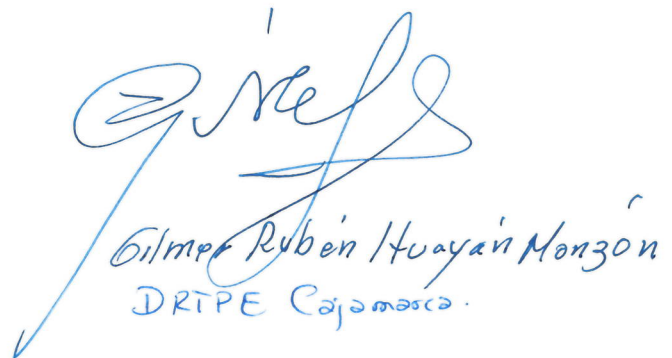 Gilmer Rubén Huayán Monzón
DRTPE Cajamarca.